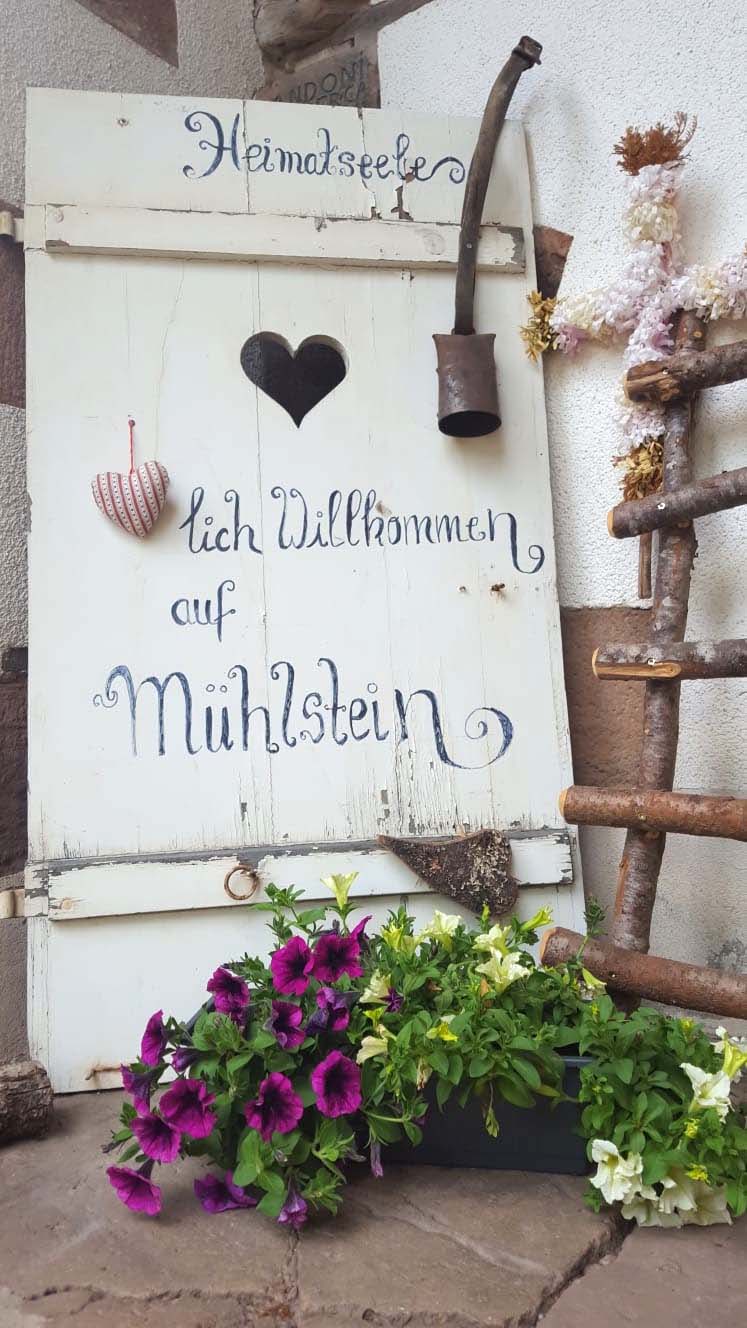 Heimatseele
lich Willkommen
auf
Mühlstein